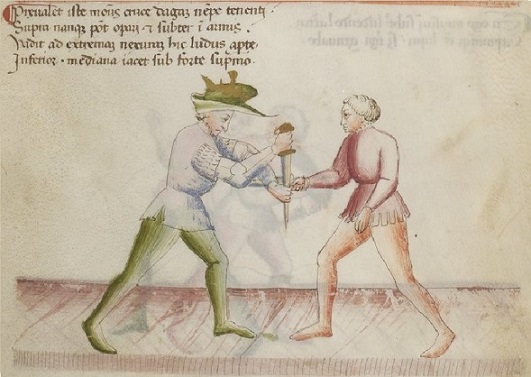 Prevalet iste modus cruce dagaz nẽpe tenenti
Supra nanqz põt opari · & subter ĩ armis
Vadit ad extremaz nexuraz hic ludus apte
Inferior · mediana iacet sub forte supmo ·